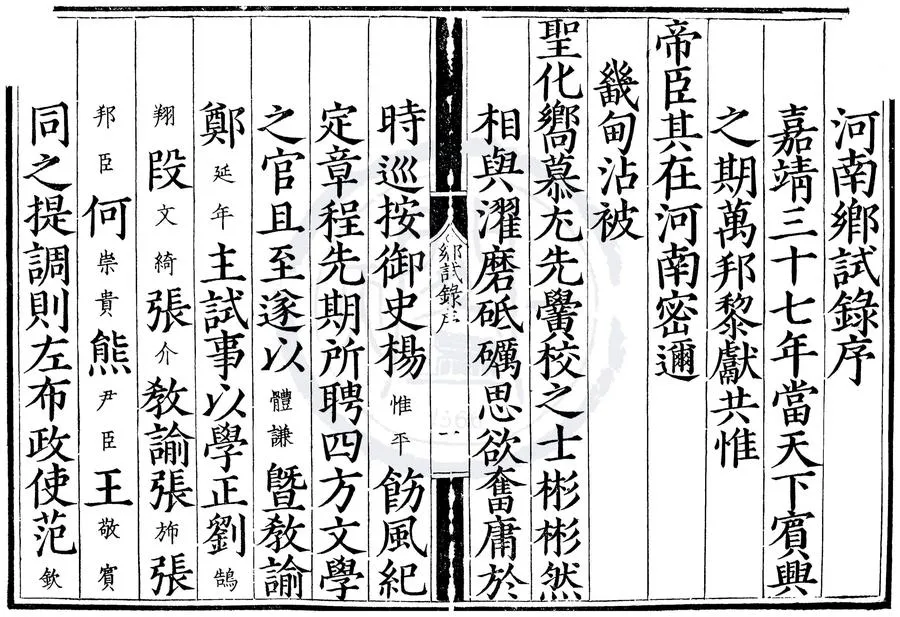 河南鄉試錄序
嘉靖三十七年當天下賓興
之期萬邦黎獻共惟
帝臣其在河南密邇
畿甸沾被
聖化嚮慕尤先黌校之士彬彬然
相與濯磨砥礪思欲奮庸於
鄉試錄序
一
時巡按御史楊惟平飭風紀
定章程先期所聘四方文學
之官且至遂以體謙暨教諭
鄭延年主試事以學正劉鵠
翔段文綺張介教諭張斾張
邦臣何崇貴熊尹臣王敬賓
同之提調則左布政使范欽